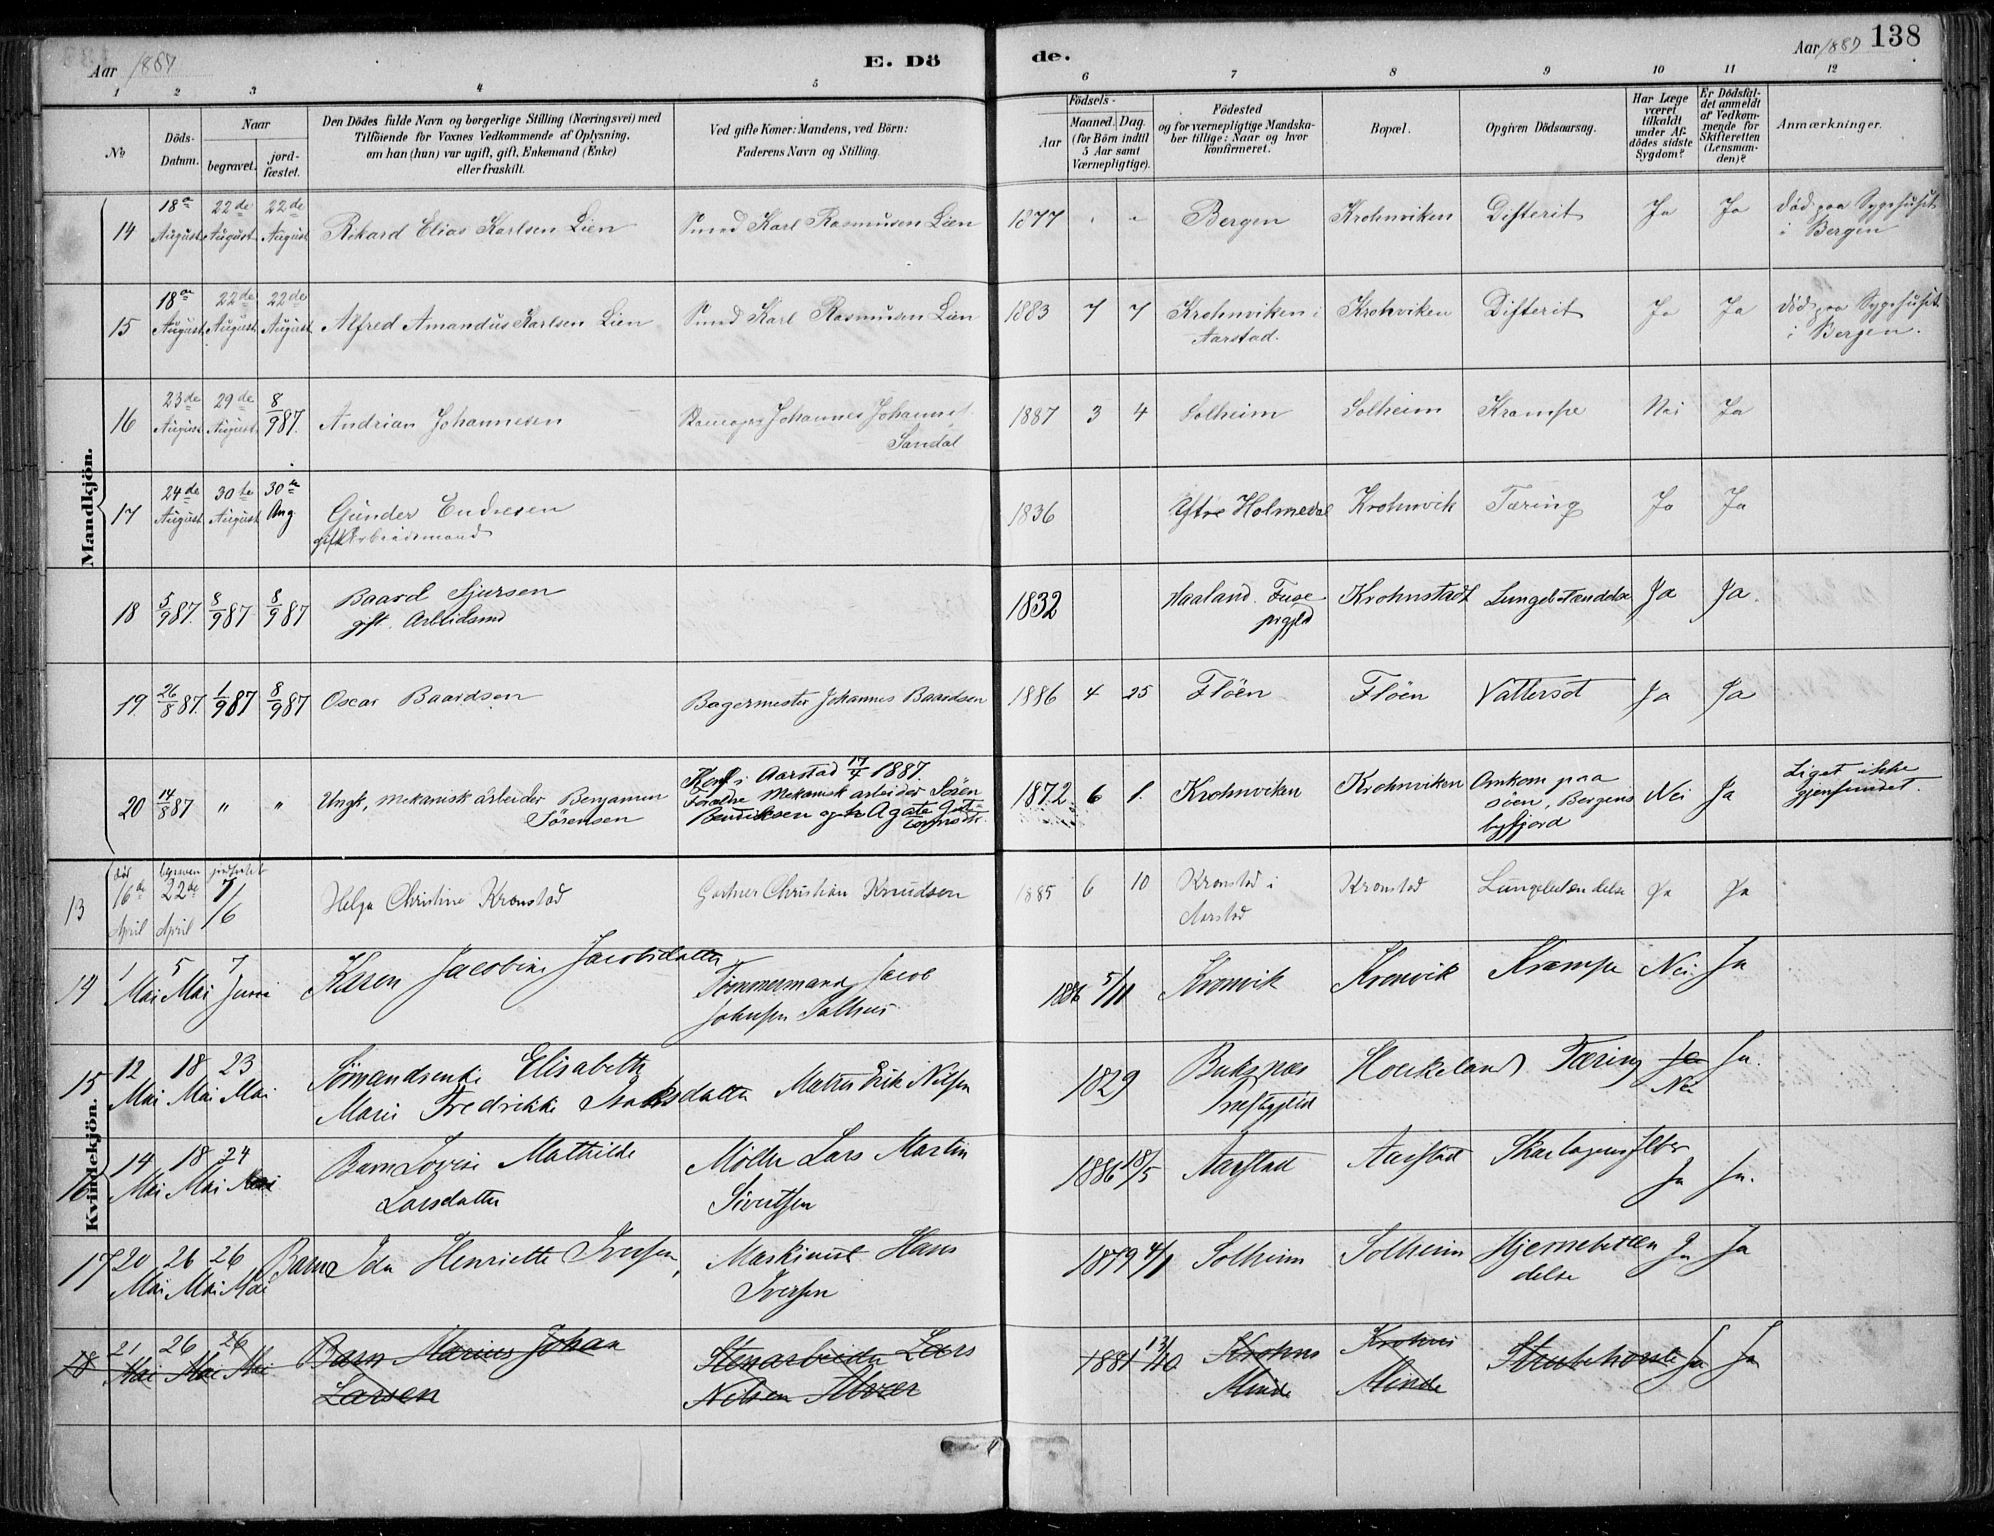 Aar 1887
E. Dö
de.
Aar 1887 138
1 2 3 4 5 6 7 8 9 10 11 12
No
Döds-Datum.
Naar
begravet.
jord-fæstet.
Den Dödes fulde Navn og borgerlige Stilling (Næringsvei) med
Tilföiende for Voxnes Vedkommende af Oplysning,
om han (hun) var ugift, gift, Enkemand (Enke)
eller fraskilt.
Ved gifte Koner: Mandens, ved Börn:
Faderens Navn og Stilling.
Födsels-
Aar
Maaned. Dag.
(for Börn indtil
5 Aar samt
Værnepligtige).
Födested
og for værnepligtige Mandska-
ber tillige: Naar og hvor
konfirmeret.
Bopæl.
Opgiven Dödsaarsag.
Har Læge
været
tilkaldt
under Af-
dödes sidste
Sygdom?
Er Dödsfal-
det anmeldt
af Vedkom-
mende for
Skifteretten
(Lensman-
den)?
Anmærkninger.
Mandkjön.
14 18de August 22de August 22de August Rikard Elias Karlsen Lien Karl Rasmusen Lien 1877 Bergen Krohnviken Difterit Ja Ja död paa Sygehuset
i Bergen
15 18de August 22de August 22de August Alfred Amandus Karlsen Lien Karl Rasmusen Lien 1883 7 7 Krohnviken i
Aarstad. Krohnviken Difterit Ja Ja död paa Sygehuset
i Bergen.
16 23de August 29de August 8/9 87. Andrian Johannesen Johannes Johannes
Sandal 1887 3 4 Solheim Solheim Krampe Nei Ja
17 24de August 30te August 30te Aug Gunder Endresen
gift Arbeidsmand 1836 Ytre Holmedal Krohnvik Tæring Ja Ja
18 5/9 87. 8/9 87 8/9 87 Baard Sjursen
gift. Arbeidsmd 1832 Haaland. Fuse
prgjld Krohnstadt Lungebetændelse Ja Ja.
19. 26/8 87. 1/9 87 8/9 87 Oscar Baardsen Bagermester Johannes Baardsen 1886 4 25 Flöen Flöen Vattersot Ja Ja
20 14/8 87 " " Ungk, mekanisk arbeider Benjamin
Sörensen Konf. i Aarstad 17/4 1887.
Forældre Mekanisk arbeider Sören
Bendiksen og h. Agate 1872 6 1. Krohnviken Krohnviken Omkom paa
söen, Bergens
byfjord Nei Ja Liget ikke
gjenfundet.
Kvindekjön.
13 död 16de April begraven 22de April 7/6 Helga Christine Kronstad Gartner Christian Knudsen 1885 6 10 Kronstad i
Aarstad Kronstad Lungebetændelse Ja Ja
14 1 Mai 5 Mai 7 Juni Karen Jacobine Jacobsdatter Tømmermand Jacob
Johnsen Solhus 1886 5/11 Kronvik Kronvik Krampe Nei. Ja
15 12 Mai 18 Mai 23 Mai Sømandsenke Elisabeth
Marie Fredrikke Isaksdatter Matros Erik Nilsen 1829 Buksnæs
Præstegjeld Houkeland Tæring Ja
Nei Ja.
16 14 Mai 18 Mai 24 Mai Barn Lovise Mathilde
Larsdatter Møller Lars Martin
Sivertsen 1886 18/5 Aarstad Aarstad Skarlagensfeber Ja Ja.
17 20 Mai 26 Mai 26 Mai Barn Ida Henriette Iversen, Maskinist Hans
Iversen 1879 4/1 Solheim Solheim Hjernebetæn
delse Ja Ja
18 21 Mai 26 Mai 26 Mai Barn Marius Johan
Larsen Stenarbeider Lars
Nilsen 1881 13/10 Krohns
Minde Krohns
Minde Strubehoste Ja Ja